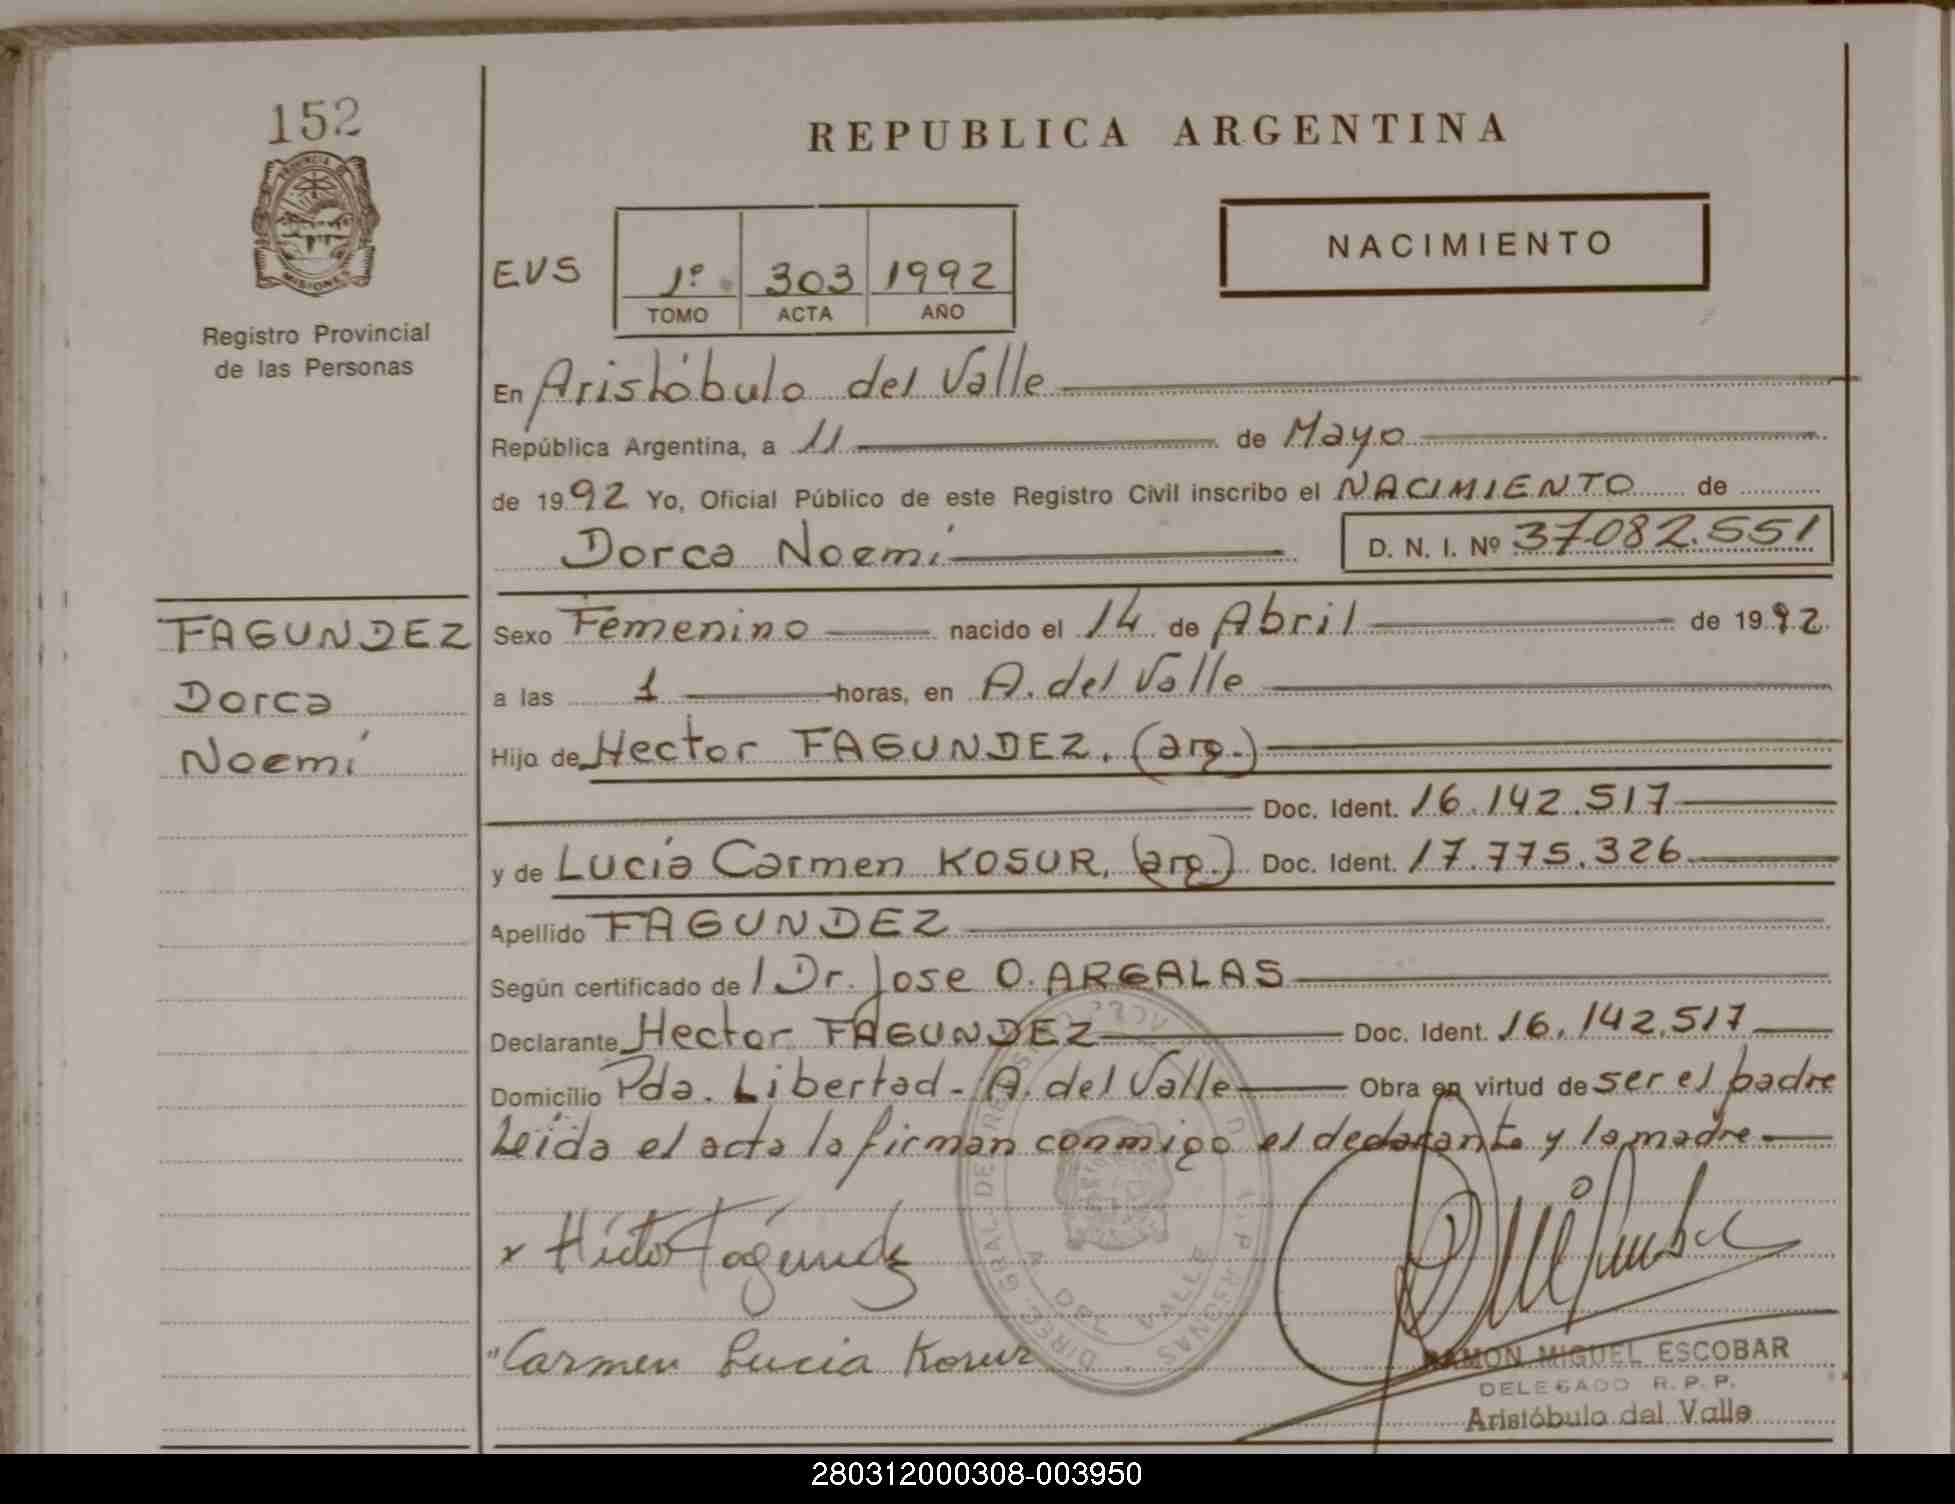 152
PROVINCIA DE
MISIONES
Registro Provincial
de las Personas
REPUBLICA ARGENTINA
NACIMIENTO
EVS
1º 303 1992
TOMO ACTA AÑO
En Aristóbulo del Valle
República Argentina, a 11 de Mayo
de 1992 Yo, Oficial Público de este Registro Civil inscribo el NACIMIENTO de
Dorca Noemí D. N. I. Nº 37.082.551
FAGUNDEZ
Dorca
Noemí
Sexo Femenino nacido el 14 de Abril de 1992
a las 1 horas, en A. del Valle
Hijo de Hector FAGUNDEZ. (arg.)
Doc. Ident. 16.142.517
y de Lucía Carmen KOSUR. (arg.) Doc. Ident. 17.775.326
Apellido FAGUNDEZ
Según certificado de l Dr. Jose O. ARGALAS
Declarante Hector FAGUNDEZ Doc. Ident. 16.142.517
Domicilio Pda. Libertad - A. del Valle Obra en virtud de ser el padre
Leída el acta la firman conmigo el declarante y la madre
x Héctor Fagundez
"Carmen Lucia Kosur
A DEL VALLE
RAMON MIGUEL ESCOBAR
DELEGADO R. P. P.
Aristóbulo del Valle
280312000308-003950